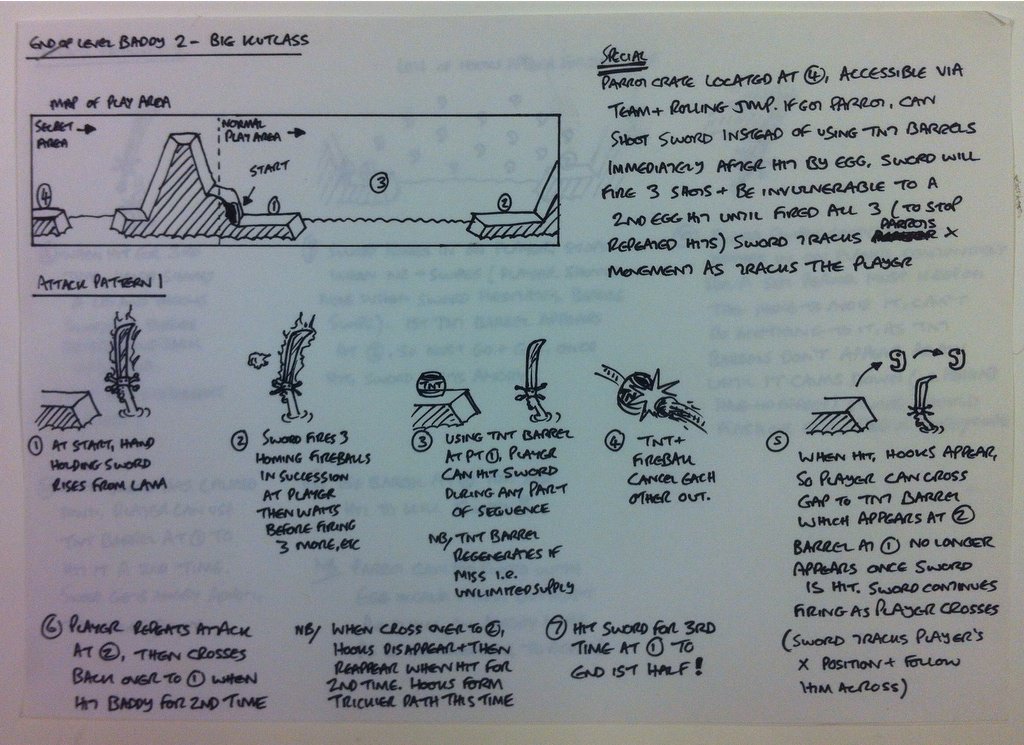 END OF LEVEL BADDY 2 - BIG KUTLASS
MAP OF PLAY AREA
SECRET →
AREA
NORMAL
PLAY AREA →
START
④
①
③
②
SPECIAL
PARROT CRATE LOCATED AT ④, ACCESSIBLE VIA
TEAM + ROLLING JUMP. IF GOT PARROT, CAN
SHOOT SWORD INSTEAD OF USING TNT BARRELS
IMMEDIATELY AFTER HIT BY EGG, SWORD WILL
FIRE 3 SHOTS + BE INVULNERABLE TO A
2ND EGG HIT UNTIL FIRED ALL 3 (TO STOP
REPEATED HITS) SWORD TRACKS PARROTS X
MOVEMENT AS TRACKS THE PLAYER
ATTACK PATTERN 1
① AT START, HAND
HOLDING SWORD
RISES FROM LAVA
② SWORD FIRES 3
HOMING FIREBALLS
IN SUCCESSION
AT PLAYER
THEN WAITS
BEFORE FIRING
3 MORE, ETC
TNT
③ USING TNT BARREL
AT PT ①, PLAYER
CAN HIT SWORD
DURING ANY PART
OF SEQUENCE
NB/ TNT BARREL
REGENERATES IF
MISS I.E.
UNLIMITED SUPPLY
TNT
TNT
④ TNT +
FIREBALL
CANCEL EACH
OTHER OUT.
⑤ WHEN HIT, HOOKS APPEAR,
SO PLAYER CAN CROSS
GAP TO TNT BARREL
WHICH APPEARS AT ②
BARREL AT ① NO LONGER
APPEARS ONCE SWORD
IS HIT. SWORD CONTINUES
FIRING AS PLAYER CROSSES
(SWORD TRACKS PLAYER'S
X POSITION + FOLLOW
HIM ACROSS)
⑥ PLAYER REPEATS ATTACK
AT ②, THEN CROSSES
BACK OVER TO ① WHEN
HIT BADDY FOR 2ND TIME
NB/ WHEN CROSS OVER TO ②,
HOOKS DISAPPEAR + THEN
REAPPEAR WHEN HIT FOR
2ND TIME. HOOKS FORM
TRICKIER PATH THIS TIME
⑦ HIT SWORD FOR 3RD
TIME AT ① TO
END 1ST HALF!